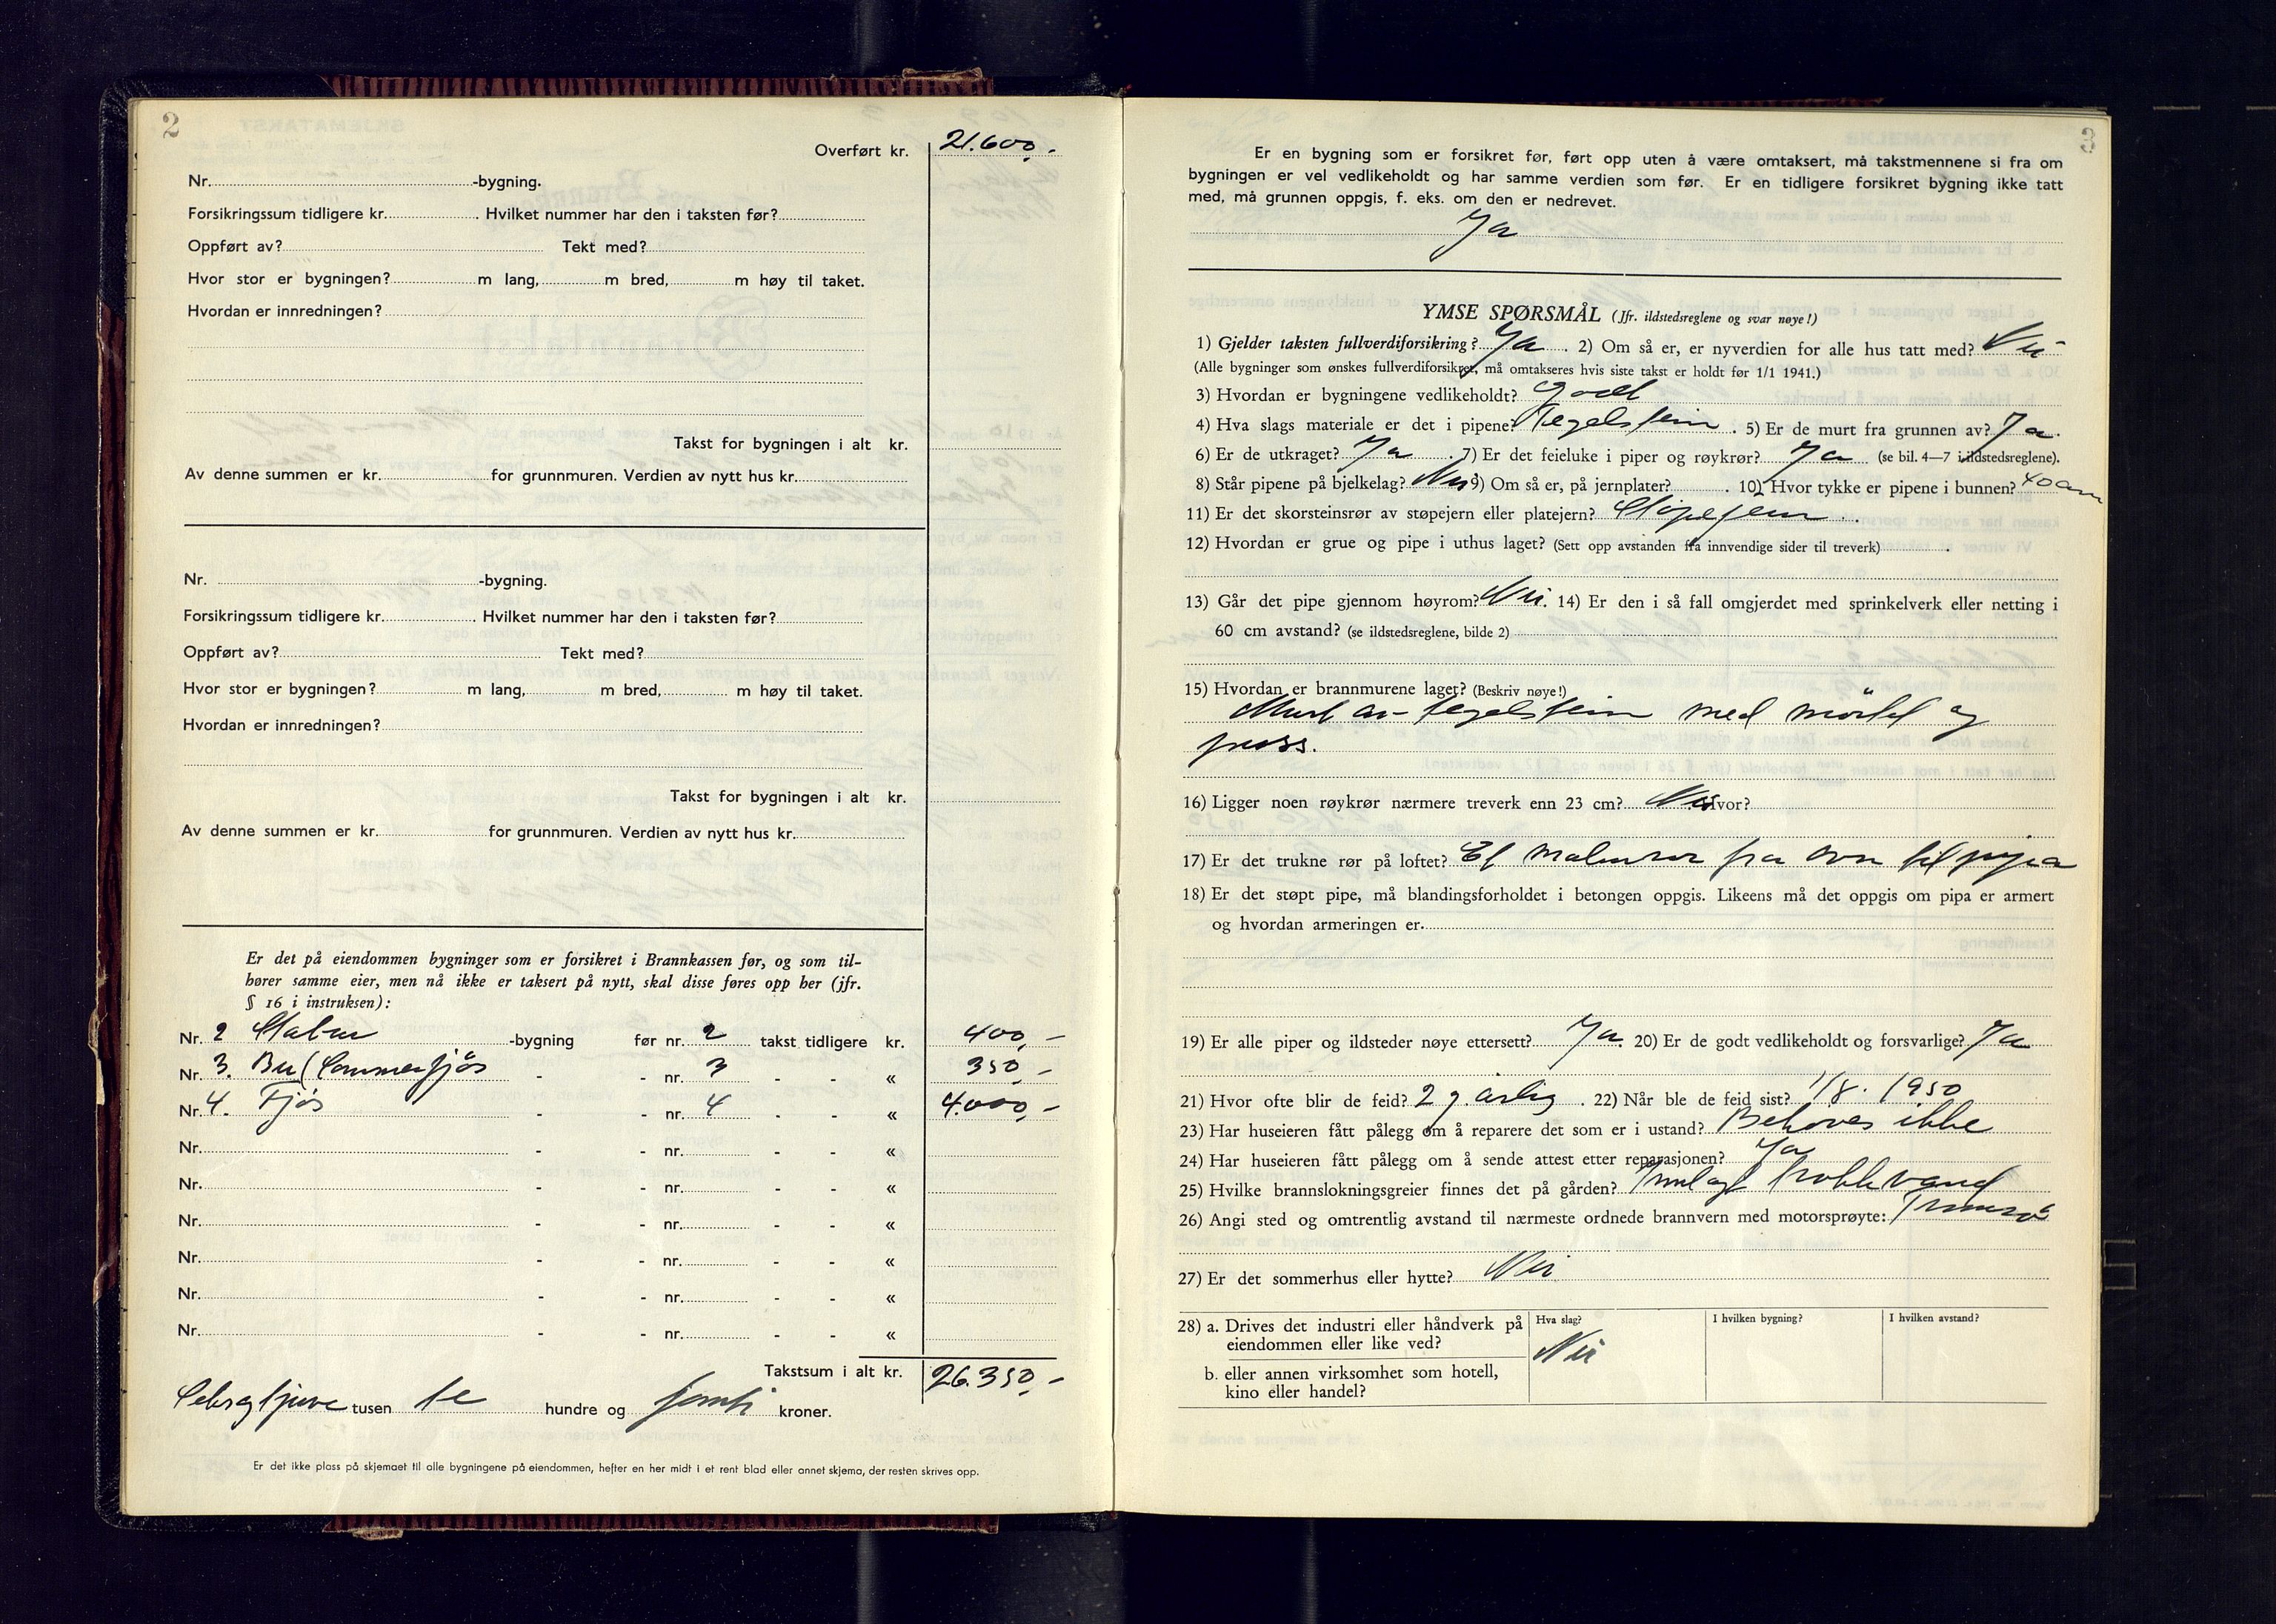 2
Overført kr. 21.600,-
Nr. -bygning.
Forsikringssum tidligere kr. . Hvilket nummer har den i taksten før?
Oppført av? Tekt med?
Hvor stor er bygningen? m lang, m bred, m høy til taket.
Hvordan er innredningen?
Takst for bygningen i alt kr.
Av denne summen er kr. for grunnmuren. Verdien av nytt hus kr.
Nr. -bygning.
Forsikringssum tidligere kr. . Hvilket nummer har den i taksten før?
Oppført av? Tekt med?
Hvor stor er bygningen? m lang, m bred, m høy til taket.
Hvordan er innredningen?
Takst for bygningen i alt kr.
Av denne summen er kr. for grunnmuren. Verdien av nytt hus kr.
Er det på eiendommen bygninger som er forsikret i Brannkassen før, og som til-
hører samme eier, men nå ikke er taksert på nytt, skal disse føres opp her (jfr.
§ 16 i instruksen):
Nr. 2 Stabur -bygning før nr. 2 takst tidligere kr. 400,-
Nr. 3. Bu (Sommerfjös - - nr. 3 - - « 350,-
Nr. 4. Fjös - - nr. 4 - - « 4.000,-
Nr. - - nr. - - «
Nr. - - nr. - - «
Nr. - - nr. - - «
Nr. - - nr. - - «
Nr. - - nr. - - «
Nr. - - nr. - - «
Takstsum i alt kr. 26.350,-
tusen tre hundre og femti kroner.
Er det ikke plass på skjemaet til alle bygningene på eiendommen, hefter en her midt i et rent blad eller annet skjema, der resten skrives opp.
3
Er en bygning som er forsikret før, ført opp uten å være omtaksert, må takstmennene si fra om
bygningen er vel vedlikeholdt og har samme verdien som før. Er en tidligere forsikret bygning ikke tatt
med, må grunnen oppgis, f. eks. om den er nedrevet.
Ja
YMSE SPØRSMÅL (Jfr. ildstedsreglene og svar nøye!)
1) Gjelder taksten fullverdiforsikring? Ja . 2) Om så er, er nyverdien for alle hus tatt med? Nei
(Alle bygninger som ønskes fullverdiforsikret, må omtakseres hvis siste takst er holdt før 1/1 1941.)
3) Hvordan er bygningene vedlikeholdt? godt
4) Hva slags materiale er det i pipene? Tegelstein . 5) Er de murt fra grunnen av? Ja.
6) Er de utkraget? Ja . 7) Er det feieluke i piper og røykrør? Ja (se bil. 4—7 i ildstedsreglene).
8) Står pipene på bjelkelag? Nei 9) Om så er, på jernplater? . 10) Hvor tykke er pipene i bunnen? 40 cm
11) Er det skorsteinsrør av støpejern eller platejern? Støpejern .
12) Hvordan er grue og pipe i uthus laget? (Sett opp avstanden fra innvendige sider til treverk) .
13) Går det pipe gjennom høyrom? Nei. 14) Er den i så fall omgjerdet med sprinkelverk eller netting i
60 cm avstand? (se ildstedsreglene, bilde 2)
15) Hvordan er brannmurene laget? (Beskriv nøye!)
Murt av tegelstein med mörtel og
puss.
16) Ligger noen røykrør nærmere treverk enn 23 cm? Nei Hvor?
17) Er det trukne rør på loftet? Et fra ovn til pipa
18) Er det støpt pipe, må blandingsforholdet i betongen oppgis. Likeens må det oppgis om pipa er armert
og hvordan armeringen er.
19) Er alle piper og ildsteder nøye ettersett? Ja. 20) Er de godt vedlikeholdt og forsvarlige? Ja
21) Hvor ofte blir de feid? 2 g. årlig . 22) Når ble de feid sist? 1/8. 1950
23) Har huseieren fått pålegg om å reparere det som er i ustand? Behöves ikke
24) Har huseieren fått pålegg om å sende attest etter reparasjonen? Ja
25) Hvilke brannslokningsgreier finnes det på gården? Innlagt vand
26) Angi sted og omtrentlig avstand til nærmeste ordnede brannvern med motorsprøyte: Tromsö
27) Er det sommerhus eller hytte? Nei
28) a. Drives det industri eller håndverk på
eiendommen eller like ved?
b. eller annen virksomhet som hotell,
kino eller handel?
Hva slag?
Nei
I hvilken bygning?
I hvilken avstand?